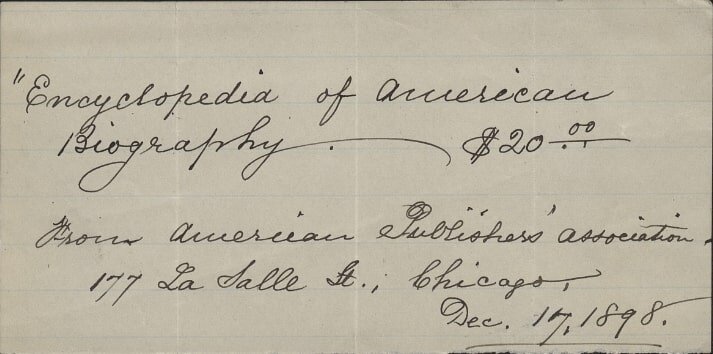 "Encyclopedia of American
Biography. $20.00
From American Publishers' Association.
177 La Salle St., Chicago,
Dec. 17, 1898.